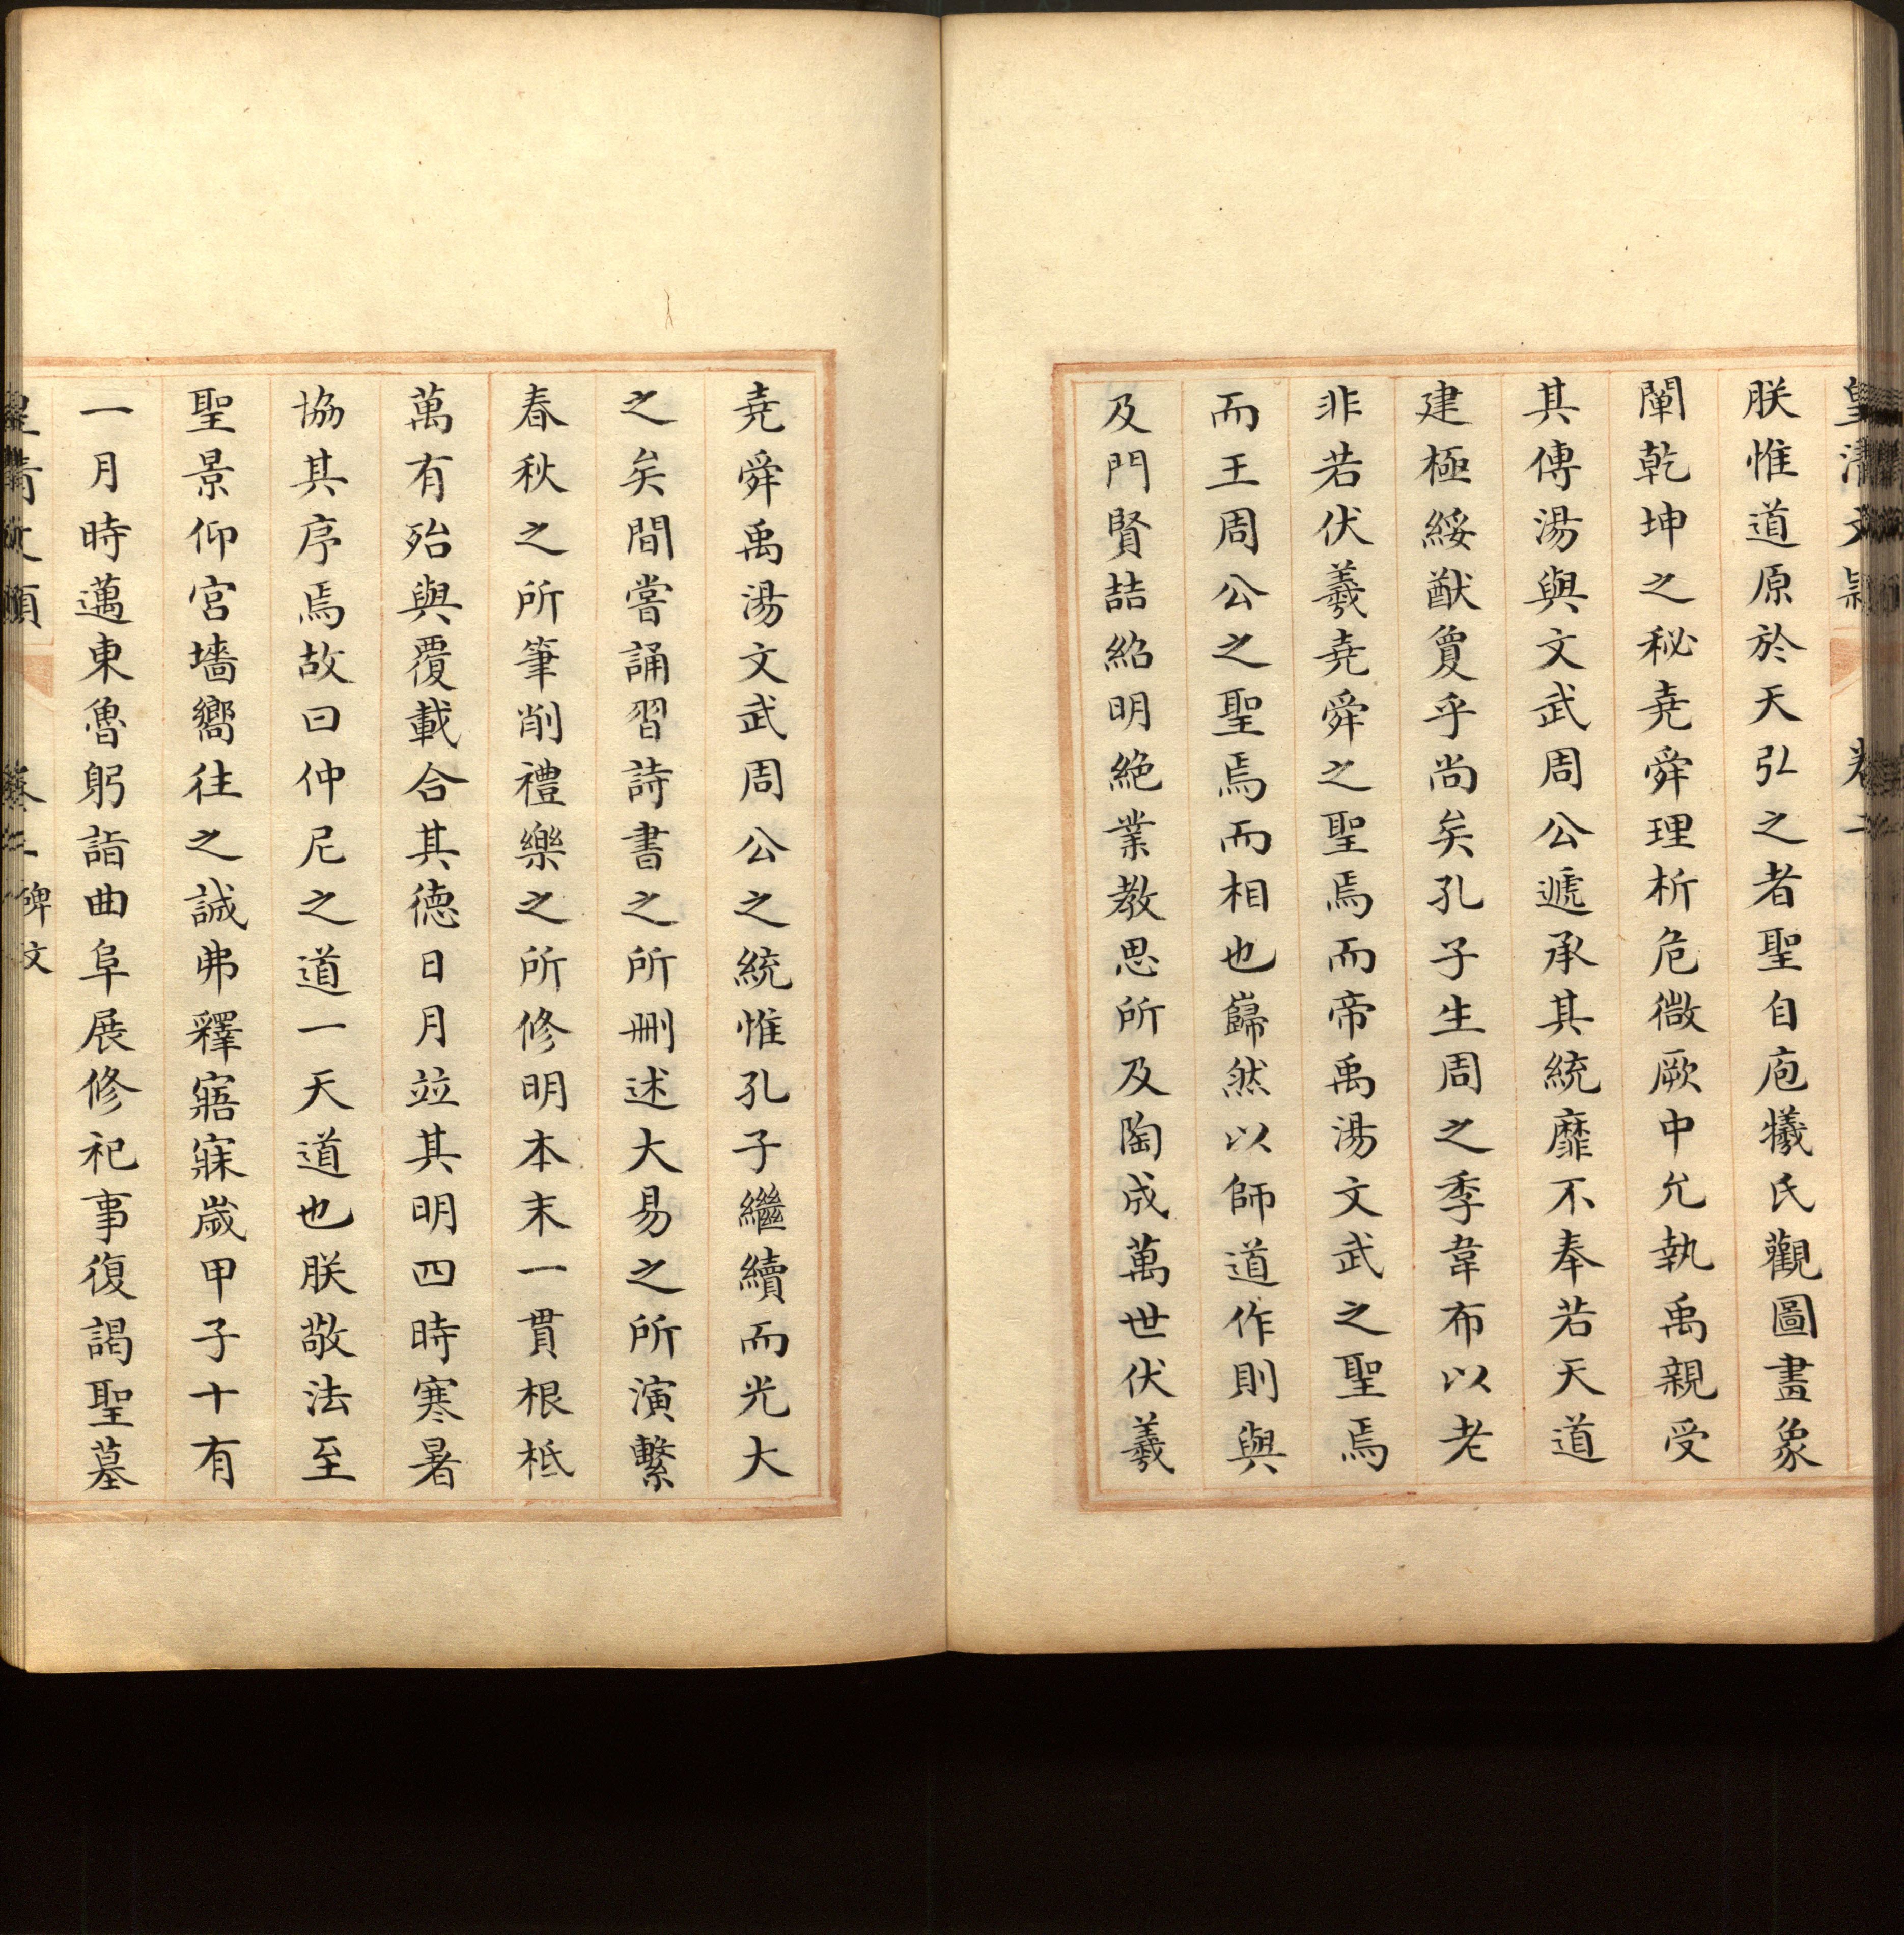 皇清文穎 卷二
朕惟道原於天弘之者聖自庖犧氏觀圖畫象
闡乾坤之秘堯舜理析危微厥中允執禹親受
其傳湯與文武周公遞承其統靡不奉若天道
建極綏猷敻乎尚矣孔子生周之季韋布以老
非若伏羲堯舜之聖焉而帝禹湯文武之聖焉
而王周公之聖焉而相也巋然以師道作則與
及門賢喆紹明絕業教思所及陶成萬世伏羲
堯舜禹湯文武周公之統惟孔子繼續而光大
之矣間嘗誦習詩書之所刪述大易之所演繫
春秋之所筆削禮樂之所修明本末一貫根柢
萬有殆與覆載合其德日月竝其明四時寒暑
協其序焉故曰仲尼之道一天道也朕敬法至
聖景仰宮墻嚮往之誠弗釋寤寐歲甲子十有
一月時邁東魯躬詣曲阜展修祀事復謁聖墓
皇清文穎 卷二 碑文